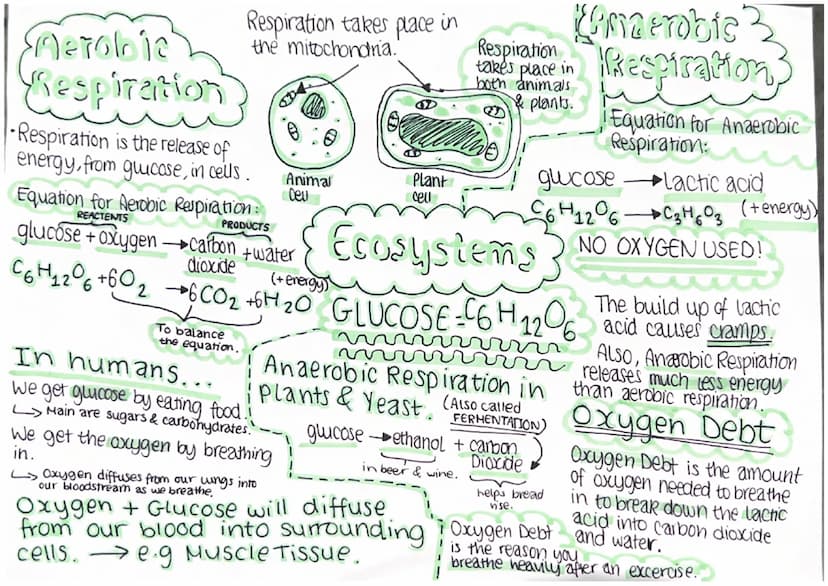 Aerobic
Respiration
• Respiration is the release of
energy, from glucose, in cells.
Equation for Aerobic Respiration:
REACTENTS
PRODUCTS
glucose + oxygen → carbon dioxide + water
(+ energy)
C6H12O6 + 6O2 → 6CO2 + 6H2O
To balance
the equation.
In humans...
We get glucose by eating food.
↳ Main are sugars & carbohydrates.
We get the oxygen by breathing
in.
↳ Oxygen diffuses from our lungs into
our bloodstream as we breathe.
Oxygen + Glucose will diffuse
from our blood into surrounding
cells. → e.g Muscle Tissue.
Respiration takes place in
the mitochondria.
Animal
Cell
Plant
Cell
Respiration
takes place in
both animals
& plants.
Ecosystems
GLUCOSE = C6H12O6
Anaerobic Respiration in
Plants & Yeast.
(Also called
FERHENTATION)
glucose → ethanol + carbon
Dioxide
in beer & wine.
helps bread
rise.
Oxygen Debt
is the reason you
breathe heavily after an excercise.
Anaerobic
Respiration
Equation for Anaerobic
Respiration:
glucose → lactic acid
(+ energy)
C6H12O6 → C3H6O3
NO OXYGEN USED!
The build up of lactic
acid causes cramps.
Also, Anaerobic Respiration
releases much less energy
than aerobic respiration.
Oxygen Debt
Oxygen Debt is the amount
of oxygen needed to breathe
in to break down the lactic
acid into carbon dioxide
and water.